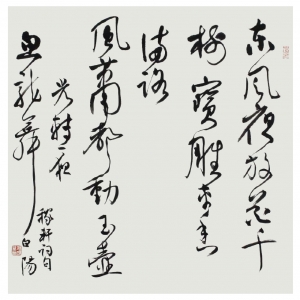 东风夜放花千
树宝雕车香
满路
风箫都动玉壶
光转一夜
鱼龙舞
稼轩词句
白阳